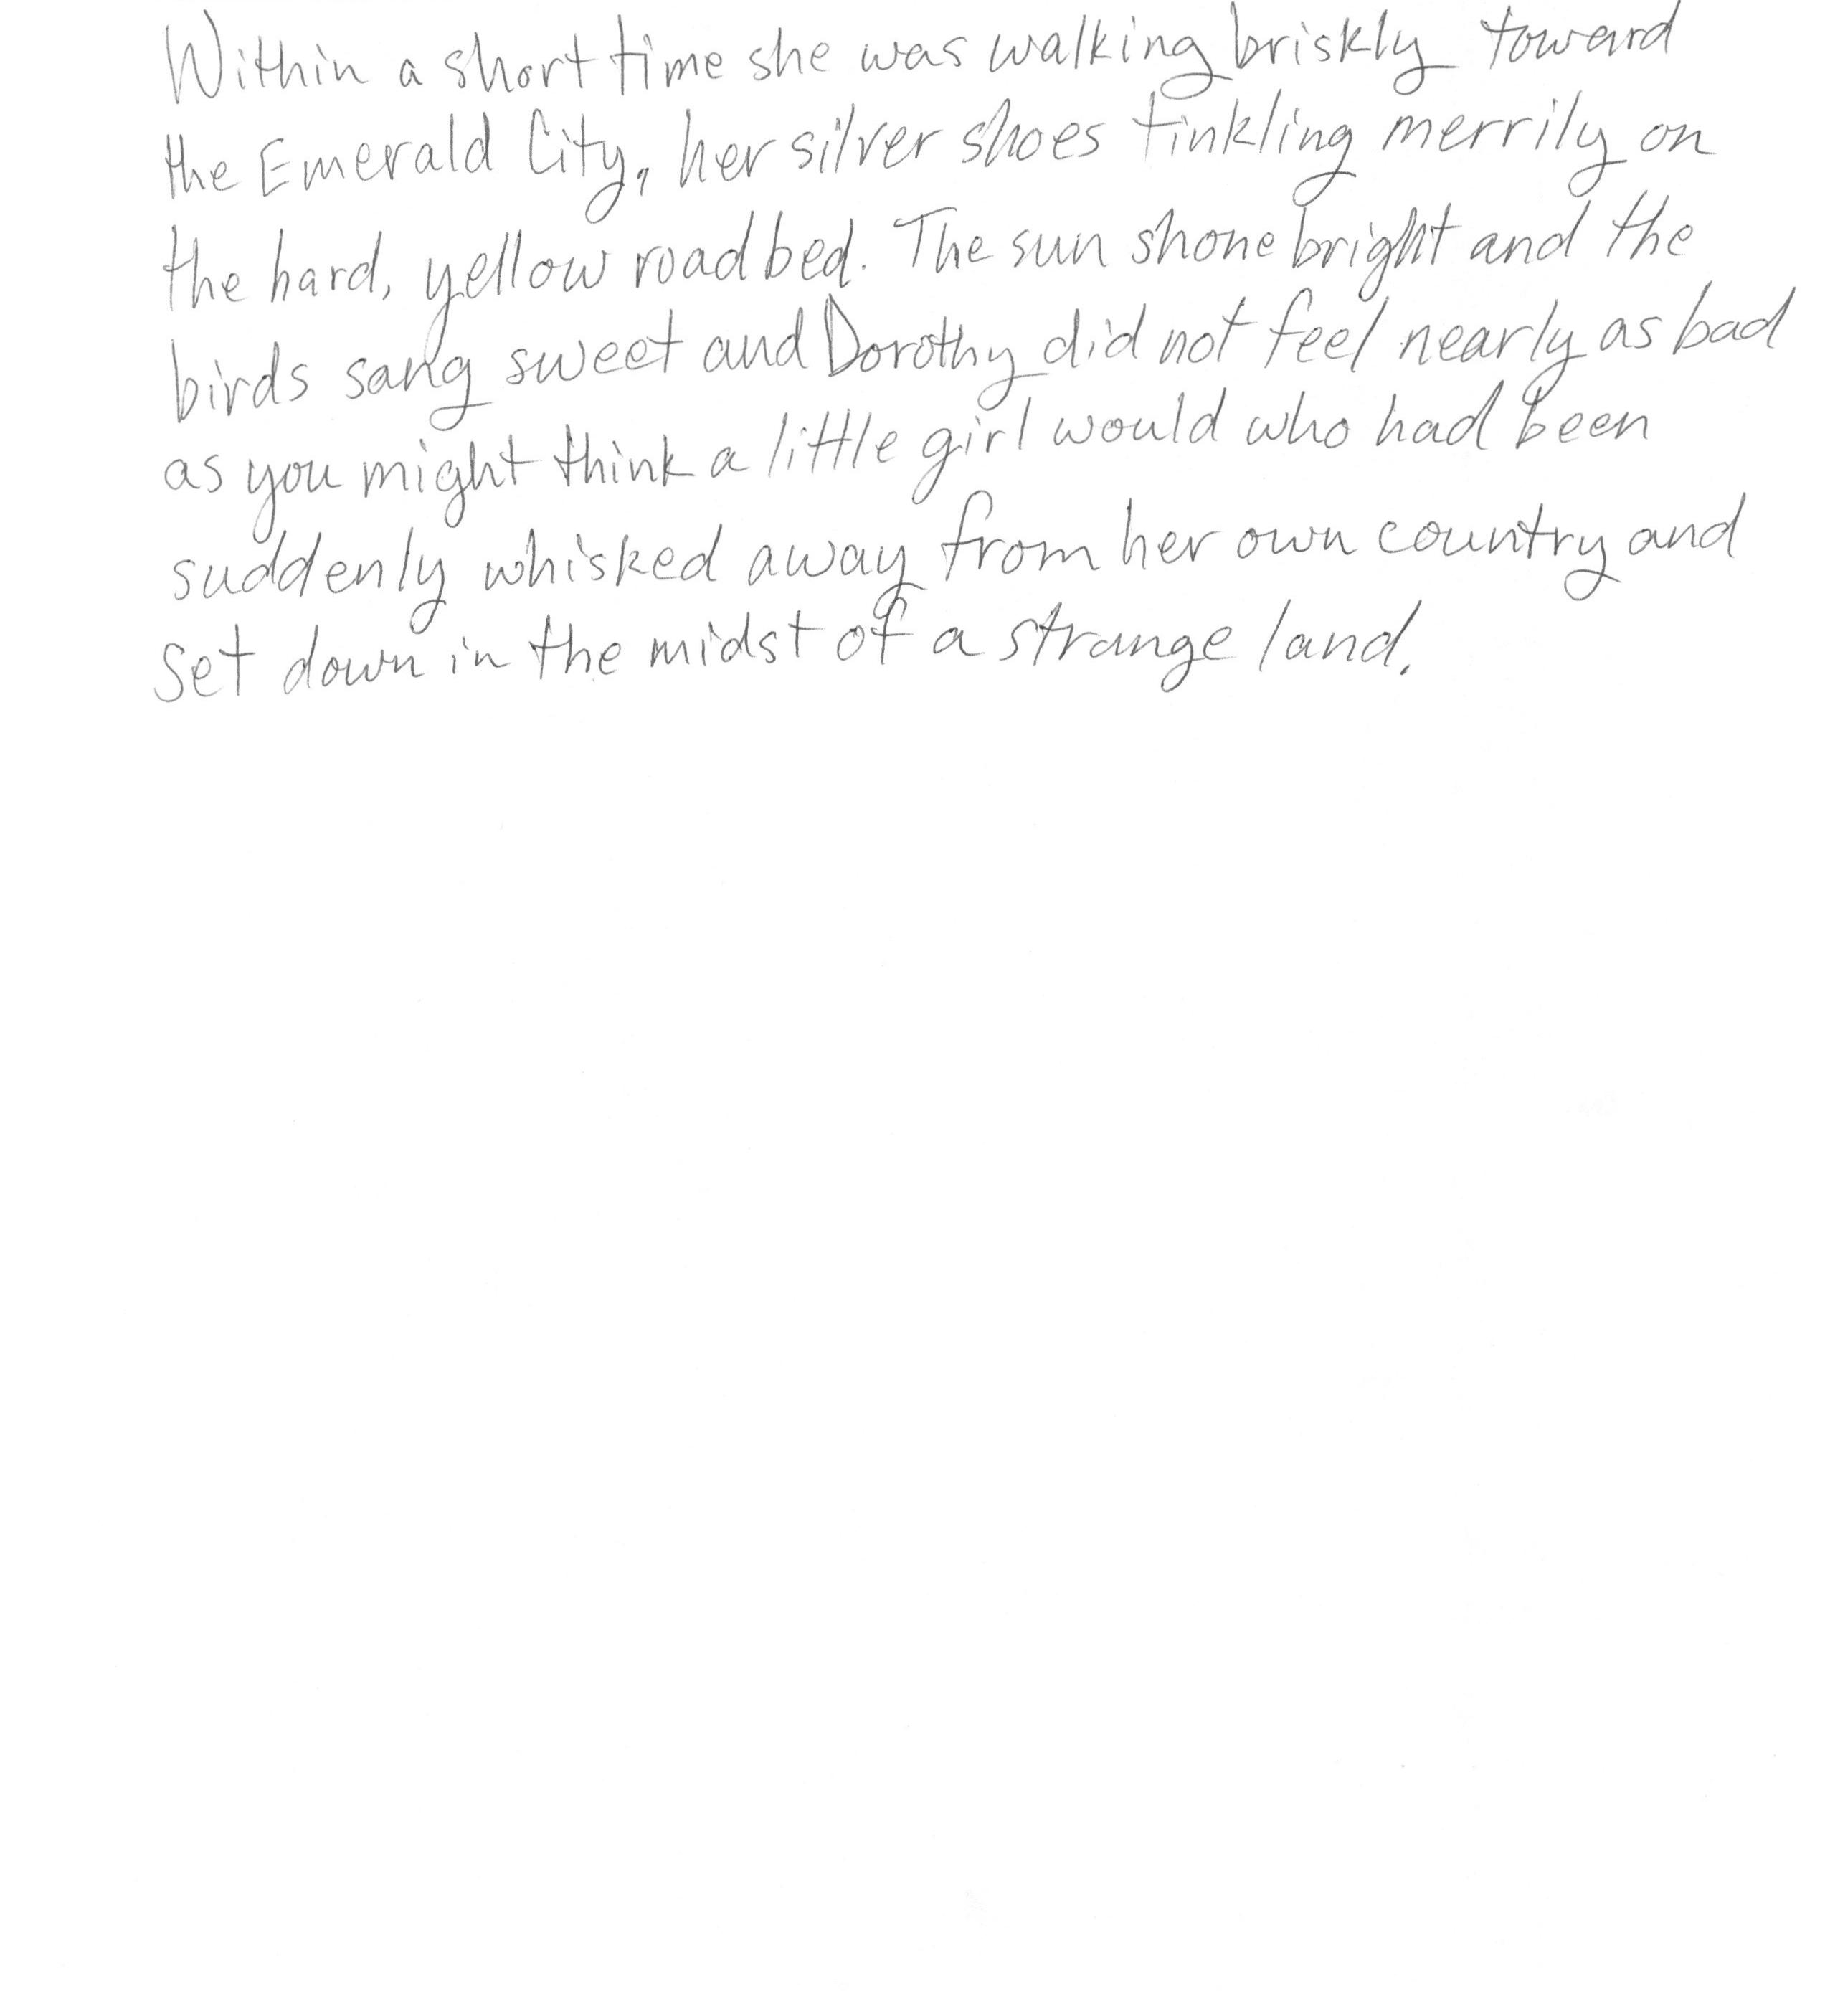 Within a short time she was walking briskly toward
the Emerald City, her silver shoes tinkling merrily on
the hard, yellow roadbed. The sun shone bright and the
birds sang sweet and Dorothy did not feel nearly as bad
as you might think a little girl would who had been
suddenly whisked away from her own country and
set down in the midst of a strange land.